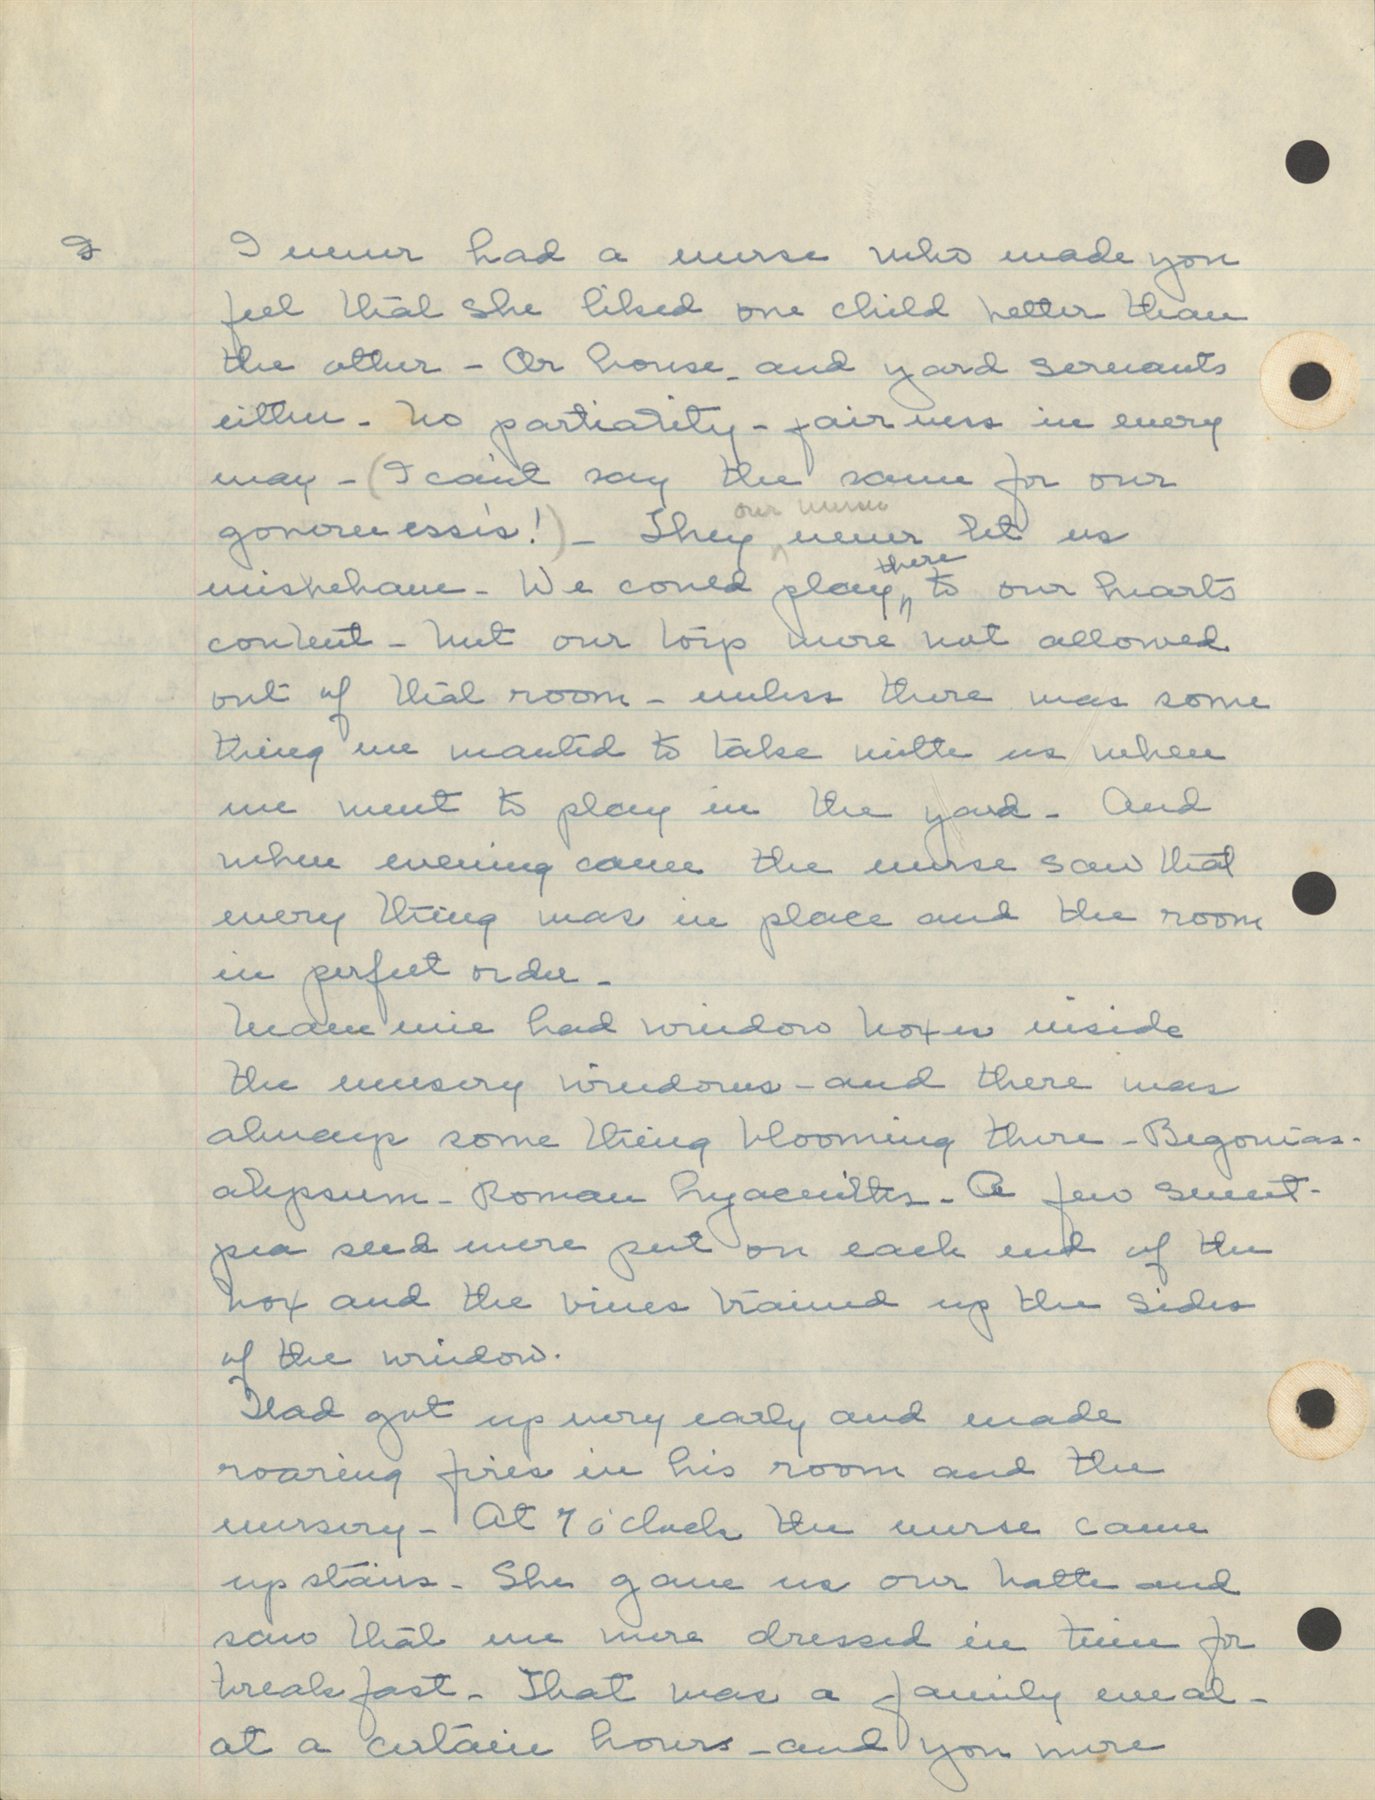 I never had a nurse who made you
feel that she liked one child better than
the other - Or house - and yard servants
either - No partiality - fairness in every
way - (I can't say the same for our
governessis!) - They never let us
our nurses
misbehave - We could play there to our hearts
content - but our toys were not allowed
out of that room - unless there was some
thing we wanted to take with us when
we went to play in the yard - And
when evening came the nurse saw that
every thing was in place and the room
in perfect order -
Mammie had window boxes inside
the nursery windows - and there was
always some thing blooming there - Begonias -
alypsum - Roman hyacinths - A few sweet -
pea seed were put on each end of the
box and the vines trained up the sides
of the window.
Dad got up very early and made
roaring fires in his room and the
nursery - At 7 o'clock the nurse came
up stairs - She gave us our bath and
saw that we were dressed in time for
breakfast - That was a family meal -
at a certain hours - and you were